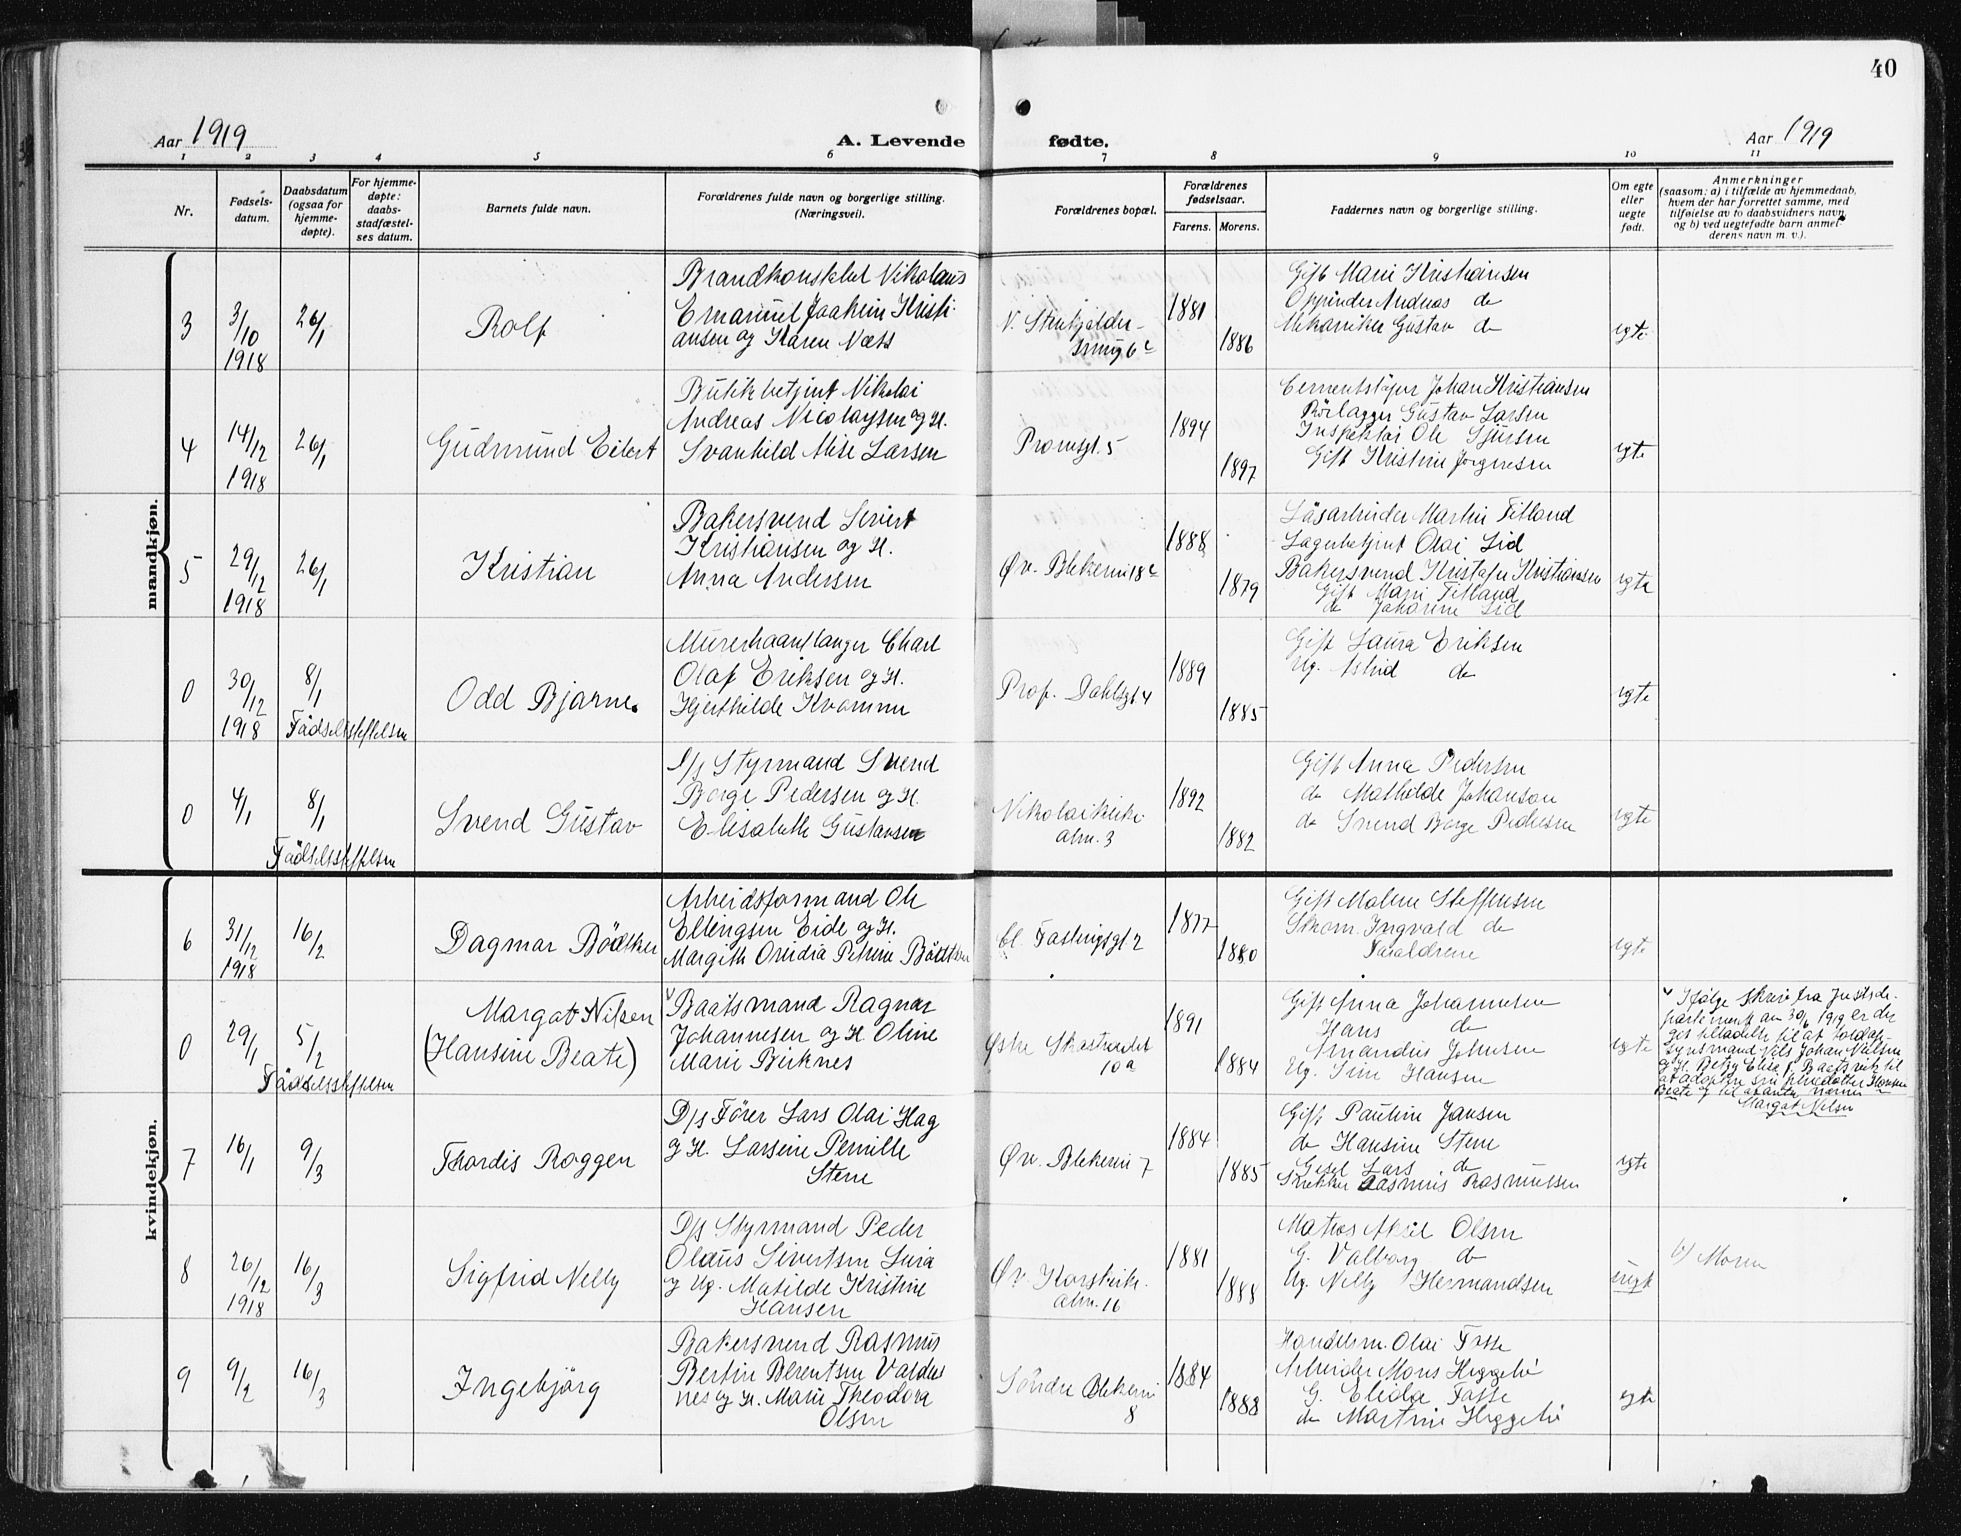 40
Aar 1919
A. Levende fødte.
Aar 1919
1 2 3 4 5 6 7 8 9 10 11
Nr.
Fødsels-
datum.
Daabsdatum
(ogsaa for
hjemme-
døpte).
For hjemme-
døpte:
daabs-
stadfæstel-
ses datum.
Barnets fulde navn.
Forældrenes fulde navn og borgerlige stilling.
(Næringsvei).
Forældrenes bopæl.
Forældrenes
fødselsaar.
Farens. Morens.
Faddernes navn og borgerlige stilling.
Om egte
eller
uegte
født.
Anmerkninger
(saasom: a) i tilfælde av hjemmedaab,
hvem der har forrettet samme, med
tilføielse av to daabsvidners navn,
og b) ved uegtefødte barn anmel-
derens navn m. v.).
mandkjøn.
3
3/10
1918
26/1
Rolf
Brandkonstabel Nikolaus
Emanuel Joakim Kristi-
ansen og Karen Næss
V. Stenkjelder-
smug 6c
1881
1886
Gift Marie Kristiansen
Andreas do
Mekaniker Gustav do
egte
4
14/12
1918
26/1
Gudmund Eilert
Butikbetjent Nikolai
Andreas Nicolaysen og H.
Svanhild Larsen
Promsgt. 5
1894
1897
Johan Kristiansen
Rörlægger Gustav Larsen
Inspektör Ole Sjursen
Gift Kristine Jörgensen
egte
5
29/12
1918
26/1
Kristian
Bakersvend Severt
Kristiansen og H.
Anna Andersen
Øv. Blekevei 18c
1888
1879
Martin Titland
Lagerbetjent Olai Lid
Bakersvend Kristofer Kristiansen
Gift Marie Titland
do Johanne Lid
egte
0
30/12
1918
8/1
Fødselsstiftelsen
Odd Bjarne.
Murerhaandlanger Charl
Olaf Eriksen og H.
Hjerthilde Kvamme
Prof. Dahlsgt 4
1889
1885
Gift Laura Eriksen
Ug. Astrid do
egte
0
4/1
8/1
Fødselsstiftelsen
Svend Gustav
D/s Styrmand Svend
Borge Pedersen og H.
Elisabeth Gustavsen
Nikolaikirke-
alm. 3
1892
1882
Gift Anna Pedersen
do Mathilde Johanson
do Svend Borge Pedersen
egte
kvindekjøn.
6
31/12
1918
16/2
Dagmar Bödtker
Arbeidsformand Ole
Ellingsen Eide og H.
Margith Ovidia Petrine Bödtker
Cl. Fastingsgt 2
1877
1880
Gift Malene Steffensen
Skom. Ingvald do
Forældrene
egte
0
29/1
5/2
Fødselsstiftelsen
Margot Nilsen
(Hansine Beate)
Baatsmand Ragnar
Johannesen og H. Oline
Marie Birknes
Østre Skostrædet
10a
1891
1884
Gift Anna Johannesen
Hans do
Amandus Johnsen
Ug. Hansen
egte
Ifølge skriv fra Justisde-
partement av 30/6 1919 er der
git tilladelse til at toldop-
synsmand Nils Johan Nielsen
og H. Betzy Elise f. Baatsvik til
at adoptere sin pleiedatter Hansine
Beate og til at anta navnet
Margot Nilsen
7
16/1
9/3
Thordis Roggen
D/s Fører Lars Olai Hag
og H. Larsine Pernille
Stene
Øv. Blekevei 7
1884
1885
Gift Pauline Jansen
do Hansine Stene
Lars do
Rasmus Rasmussen
egte
8
26/12
1918
16/3
Sigfrid Nelly
D/s Styrmand Peder
Olaus Sivertsen
og Ug. Matilde Kristine
Hansen
Øv. Korskirke-
alm. 16
1881
1888
Matros Aksel Olsen
G. Valborg do
Ug. Nelly Hermandsen
uegte
b) Moren
9
9/2
16/3
Ingebjörg
Bakersvend Rasmus
Bertin Berentsen Valder-
nes og H. Marie Theodora
Olsen
Söndre Blekevei
8
1884
1888
Handelsm. Olai Fosse
Arbeider Mons Heggebö
G. Elida Fosse
do Martine Heggebö
egte